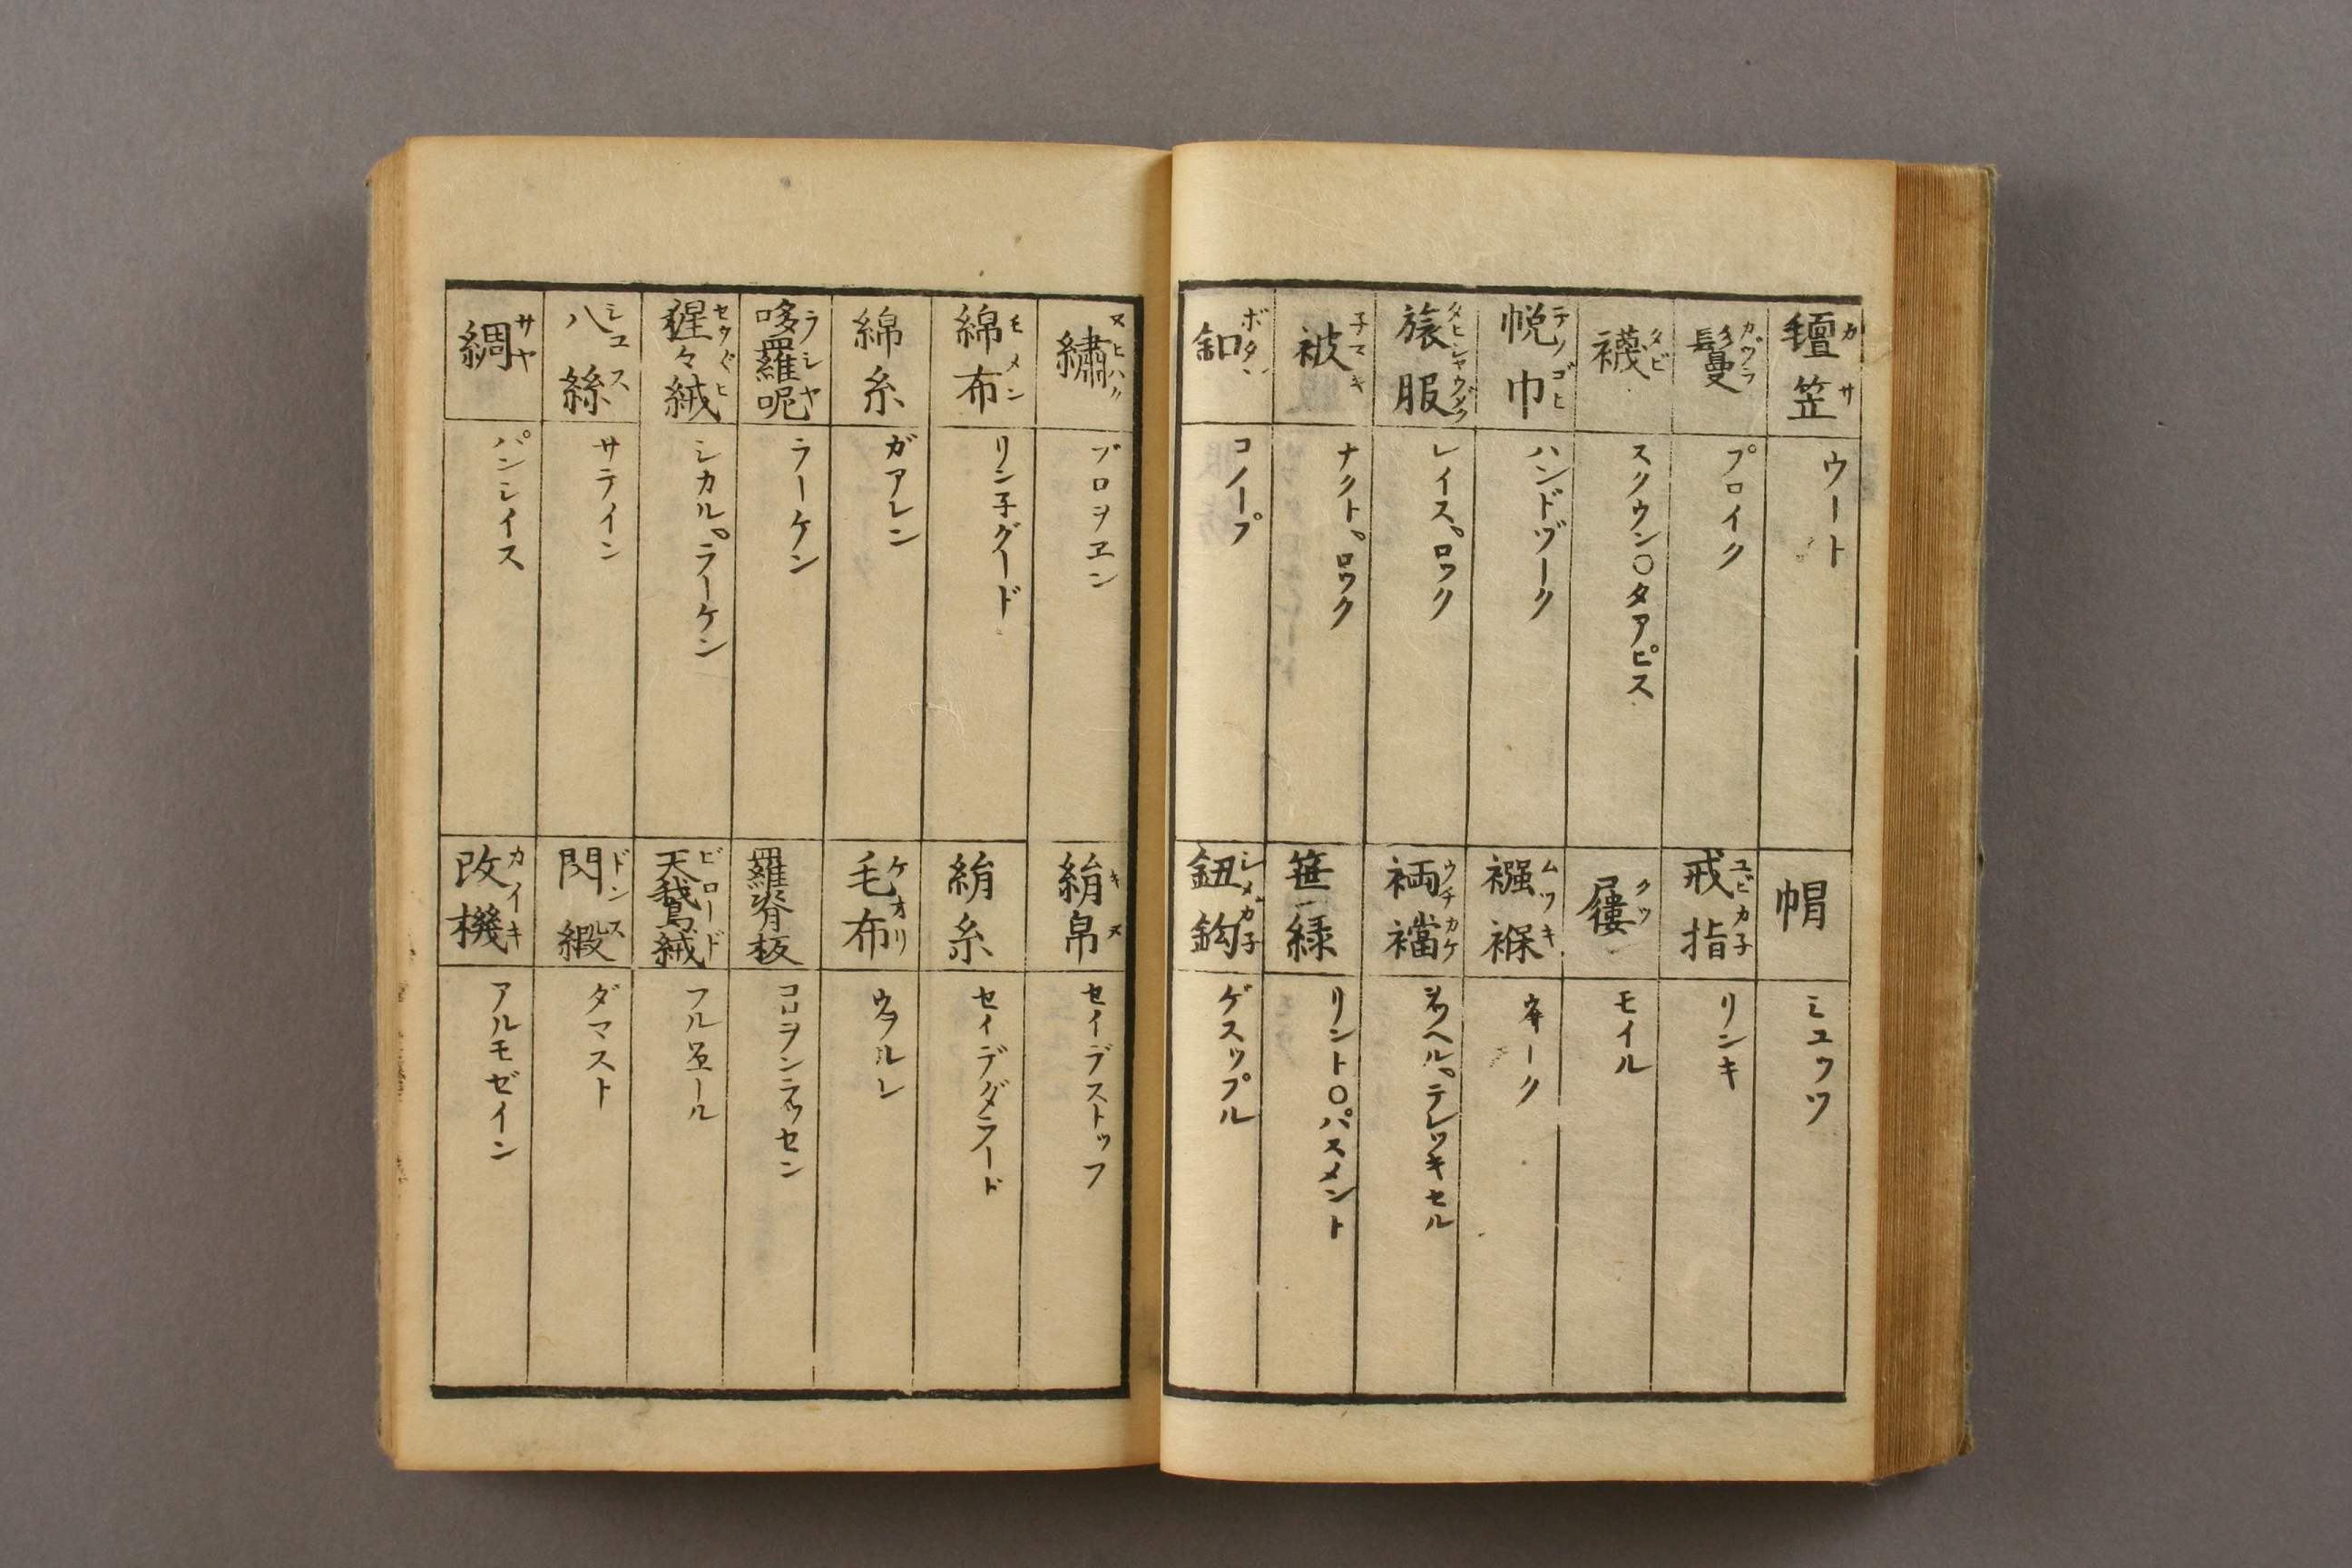 氊笠 カサ ウート
鬘 カヅラ プロイク
襪 タビ スクウン〇タアピス
帨巾 テノゴヒ ハンドヅーク
旅服 タヒシヤウゾク レイス。ロック
被 子マキ ナクト。ロック
釦 ボタン コノープ
帽 ミユッツ
戒指 ユビカ子 リンキ
屨 クツ モイル
襁褓 ムツキ ヰーク
裲襠 ウチカケ テレッキセル
笹縁 リント〇パスメント
鈕鈎 シメガ子 ゲスップル
繡 ヌヒハク ブロヲヱン
綿布 モメン リン子グード
綿糸 ガアレン
哆囉呢 ラシヤ ラーケン
猩々絨 セウ〲ヒ シカル。ラーケン
八絲 シユス サテイン
綢 サヤ パンシイス
絹帛 キヌ セイデストッフ
絹糸 セイデダラード
毛布 ケオリ ウヲルレン
羅脊板 コロヲンラッセン
天鵞絨 ビロード フルヱール
閃緞 ドンス ダマスト
改機 カイキ アルモゼイン